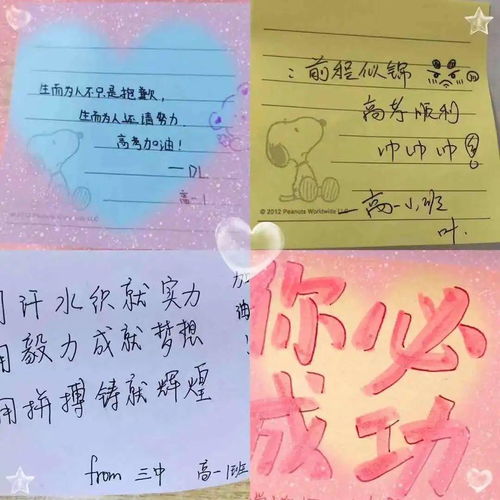 生而为人不只是抱歉,
生而为人还请努力.
高考加油!
—DL
高一1
© 2012 Peanuts Worldwide LLC
:前程似锦
高考顺利
帅帅帅
© 2012 Peanuts Worldwide LLC
—高一1班
叶.
用汗水织就实力
用毅力成就梦想
用拼搏铸就辉煌
加油!
from 三中 高一1班
你必
成功